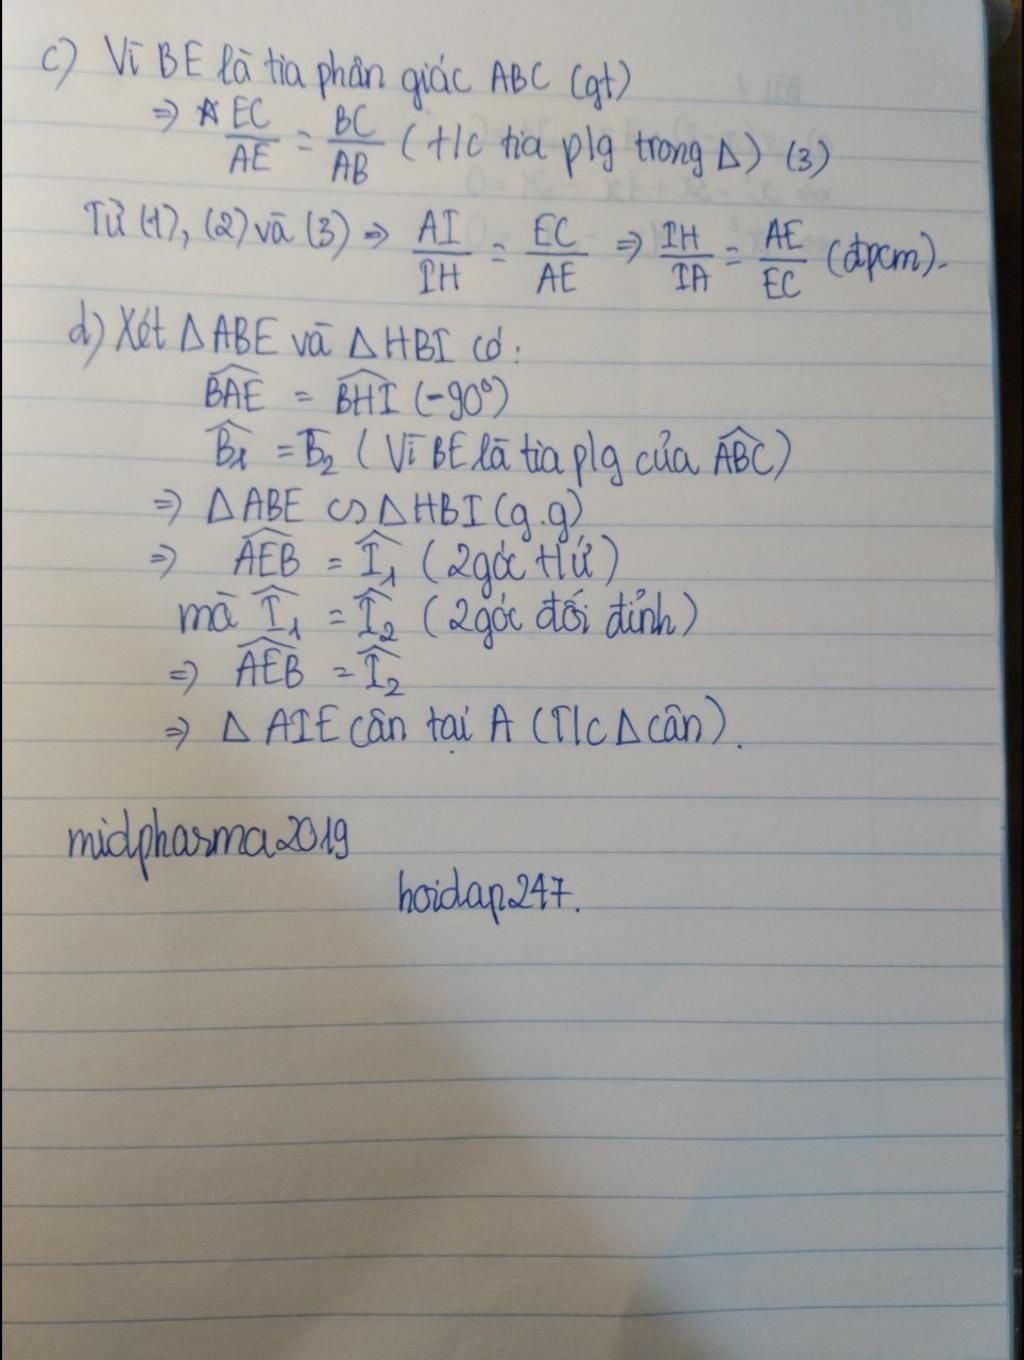 c) Vì BE là tia phân giác ABC (gt)
⇒ EC/AE = BC/AB (t/c tia p/g trong Δ) (3)
Từ (1), (2) và (3) ⇒ AI/IH = EC/AE ⇒ IH/IA = AE/EC (đpcm).
d) Xét Δ ABE và Δ HBI có:
B̂AE = B̂HI (=90°)
B̂1 = B̂2 (Vì BE là tia p/g của ÂBC)
⇒ Δ ABE ∽ Δ HBI (g.g)
⇒ ÂEB = Î1 (2 góc t/ứ)
mà Î1 = Î2 (2 góc đối đỉnh)
⇒ ÂEB = Î2
⇒ Δ AIE cân tại A (T/c Δ cân).
midpharma2019
hoidap247.